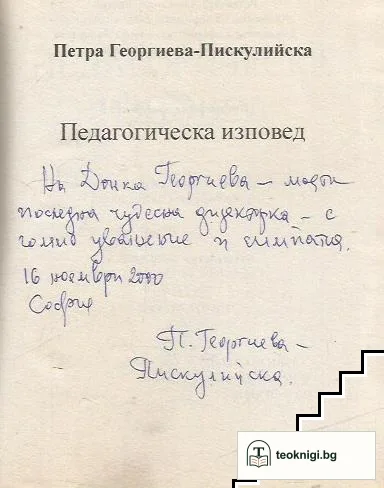 Петра Георгиева-Пискулийска
Педагогическа изповед
На Донка Георгиева – моята
последна чудесна директорка – с
голямо уважение и симпатия.
16 ноември 2000
София
П. Георгиева –
Пискулийска.
teoknigi.bg